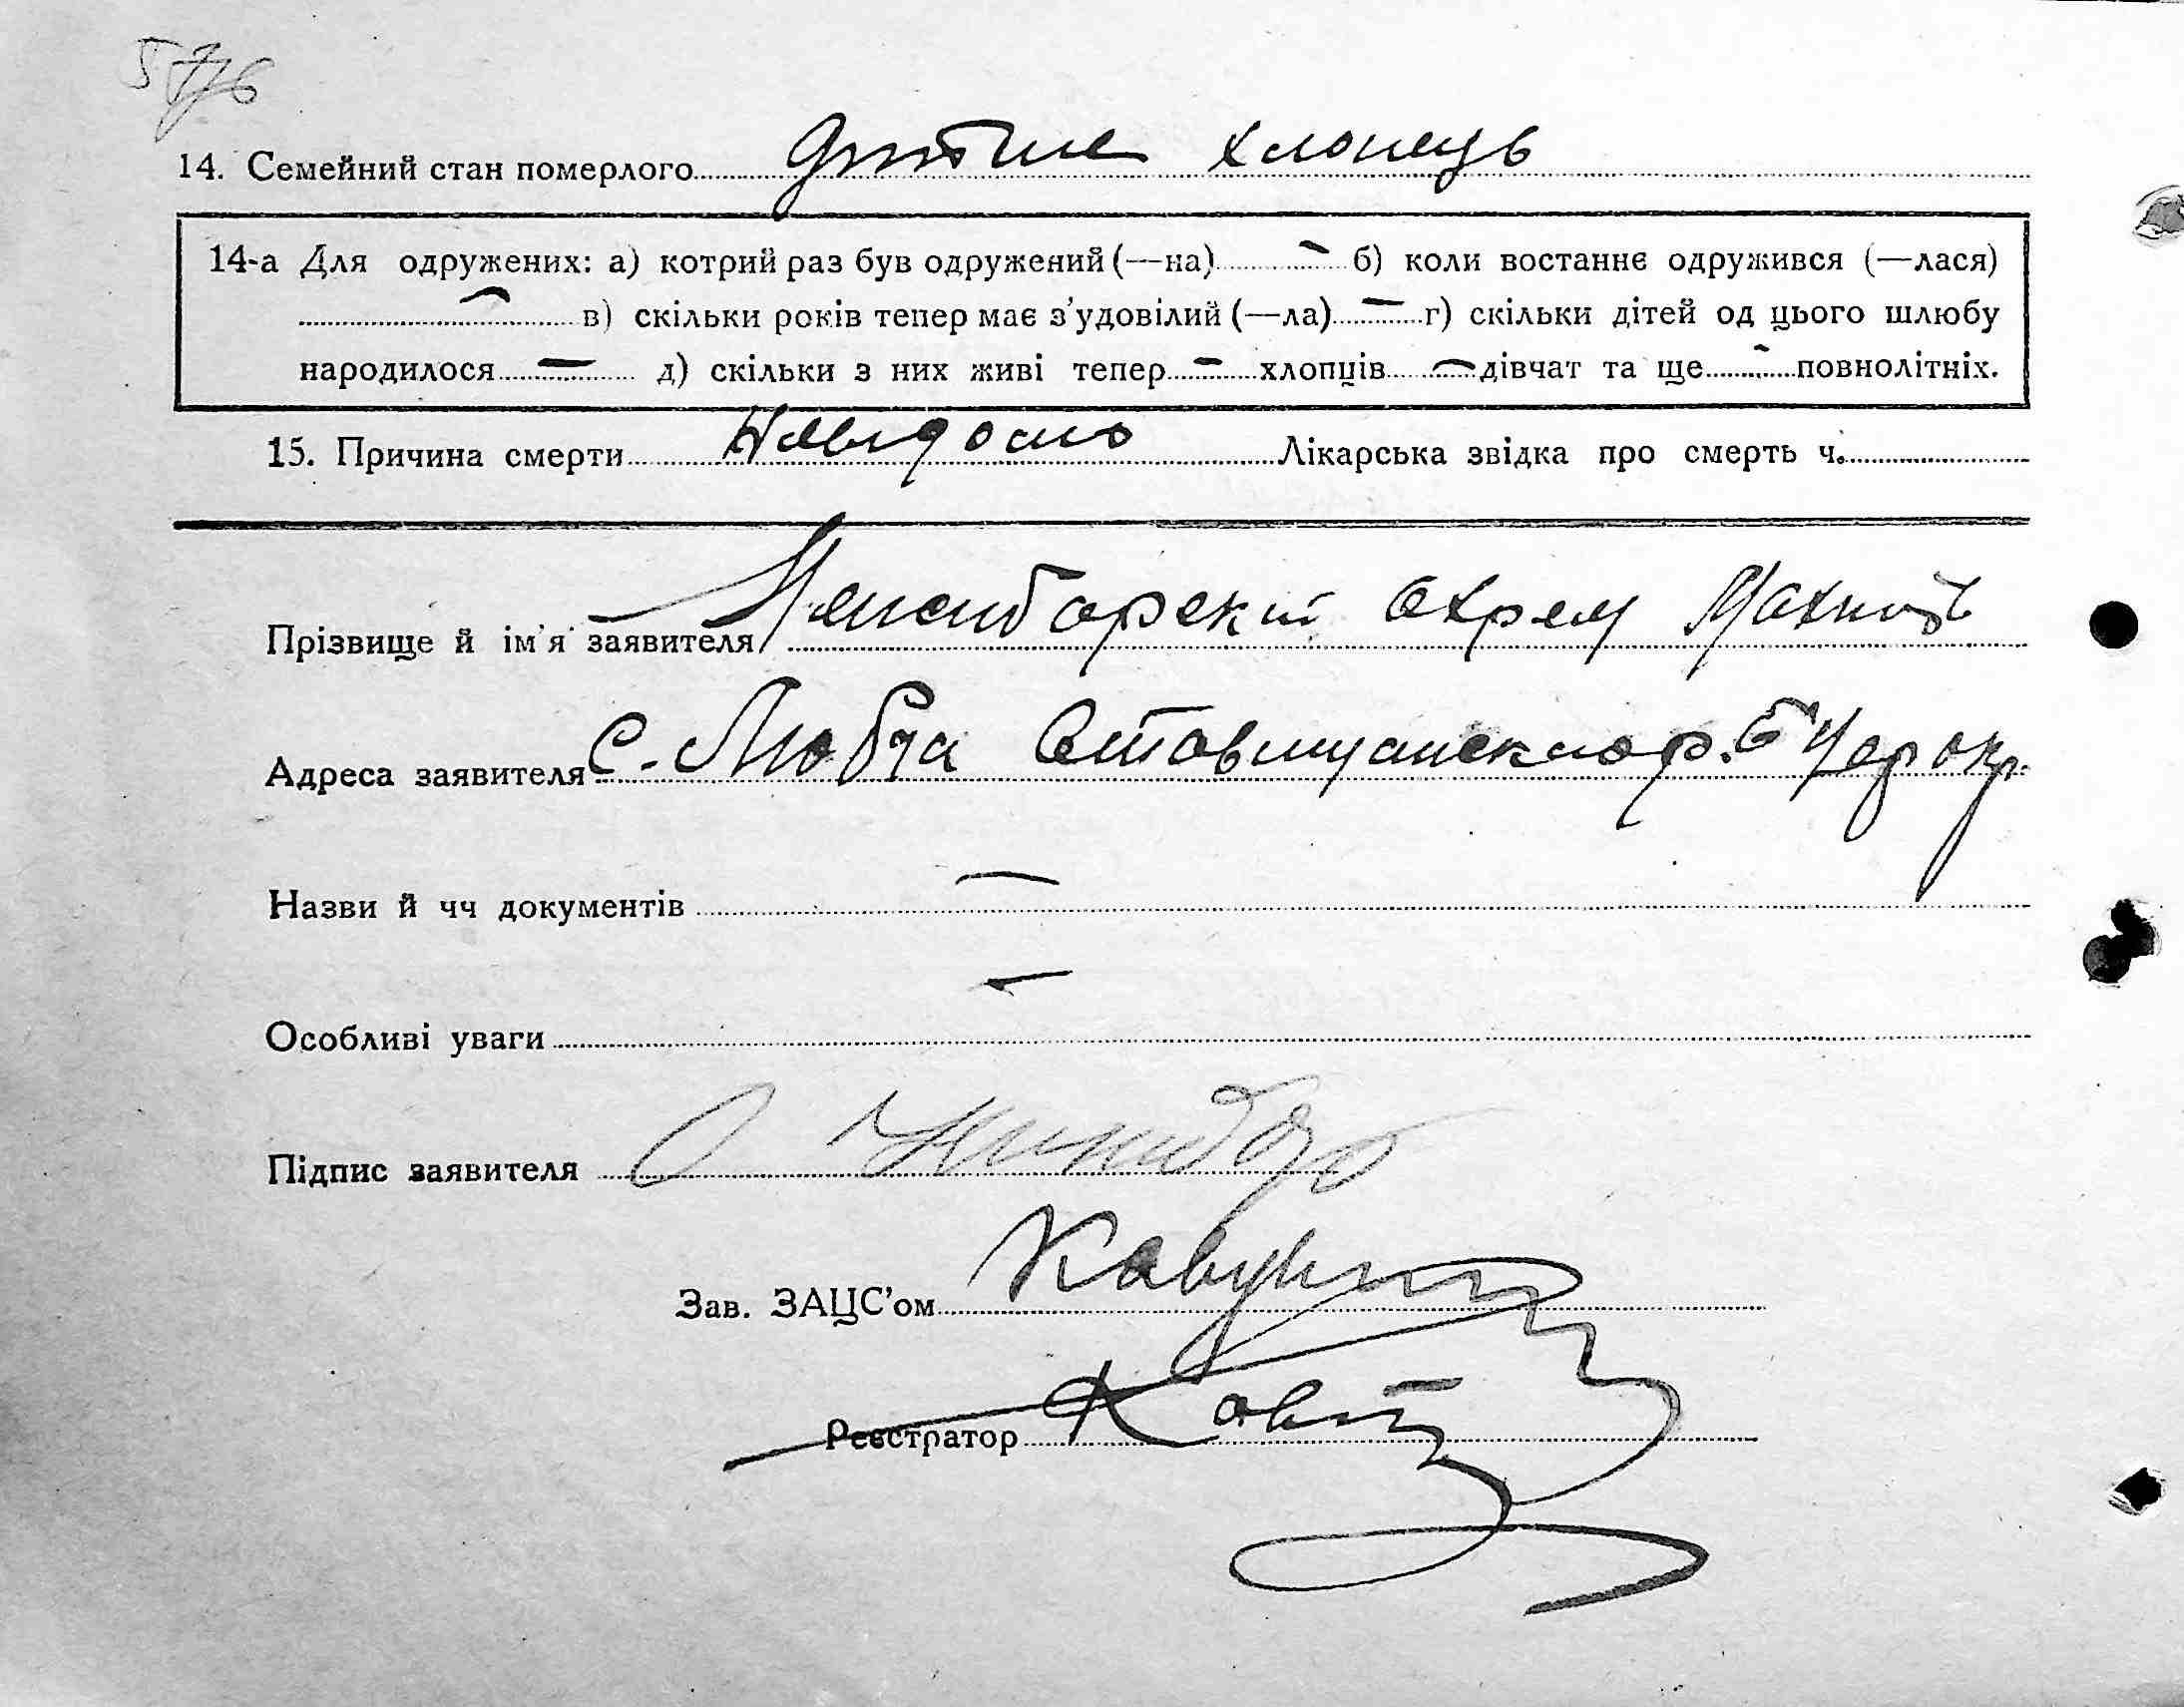 14. Семейний стан померлого дитина хлопець
14-а Для одружених: а) котрий раз був одружений (—на) — б) коли востаннє одружився (—лася)
— в) скільки років тепер має з'удовілий (—ла) — г) скільки дітей од цього шлюбу
народилося — д) скільки з них живі тепер — хлопців — дівчат та ще — повнолітніх.
15. Причина смерти Невідомо Лікарська звідка про смерть ч.
Прізвище й ім'я заявителя Охрем
Адреса заявителя С. Любча Ставищанского р. Б Цер окр.
Назви й чч документів —
Особливі уваги —
Підпис заявителя
Зав. ЗАЦС'ом
Реєстратор